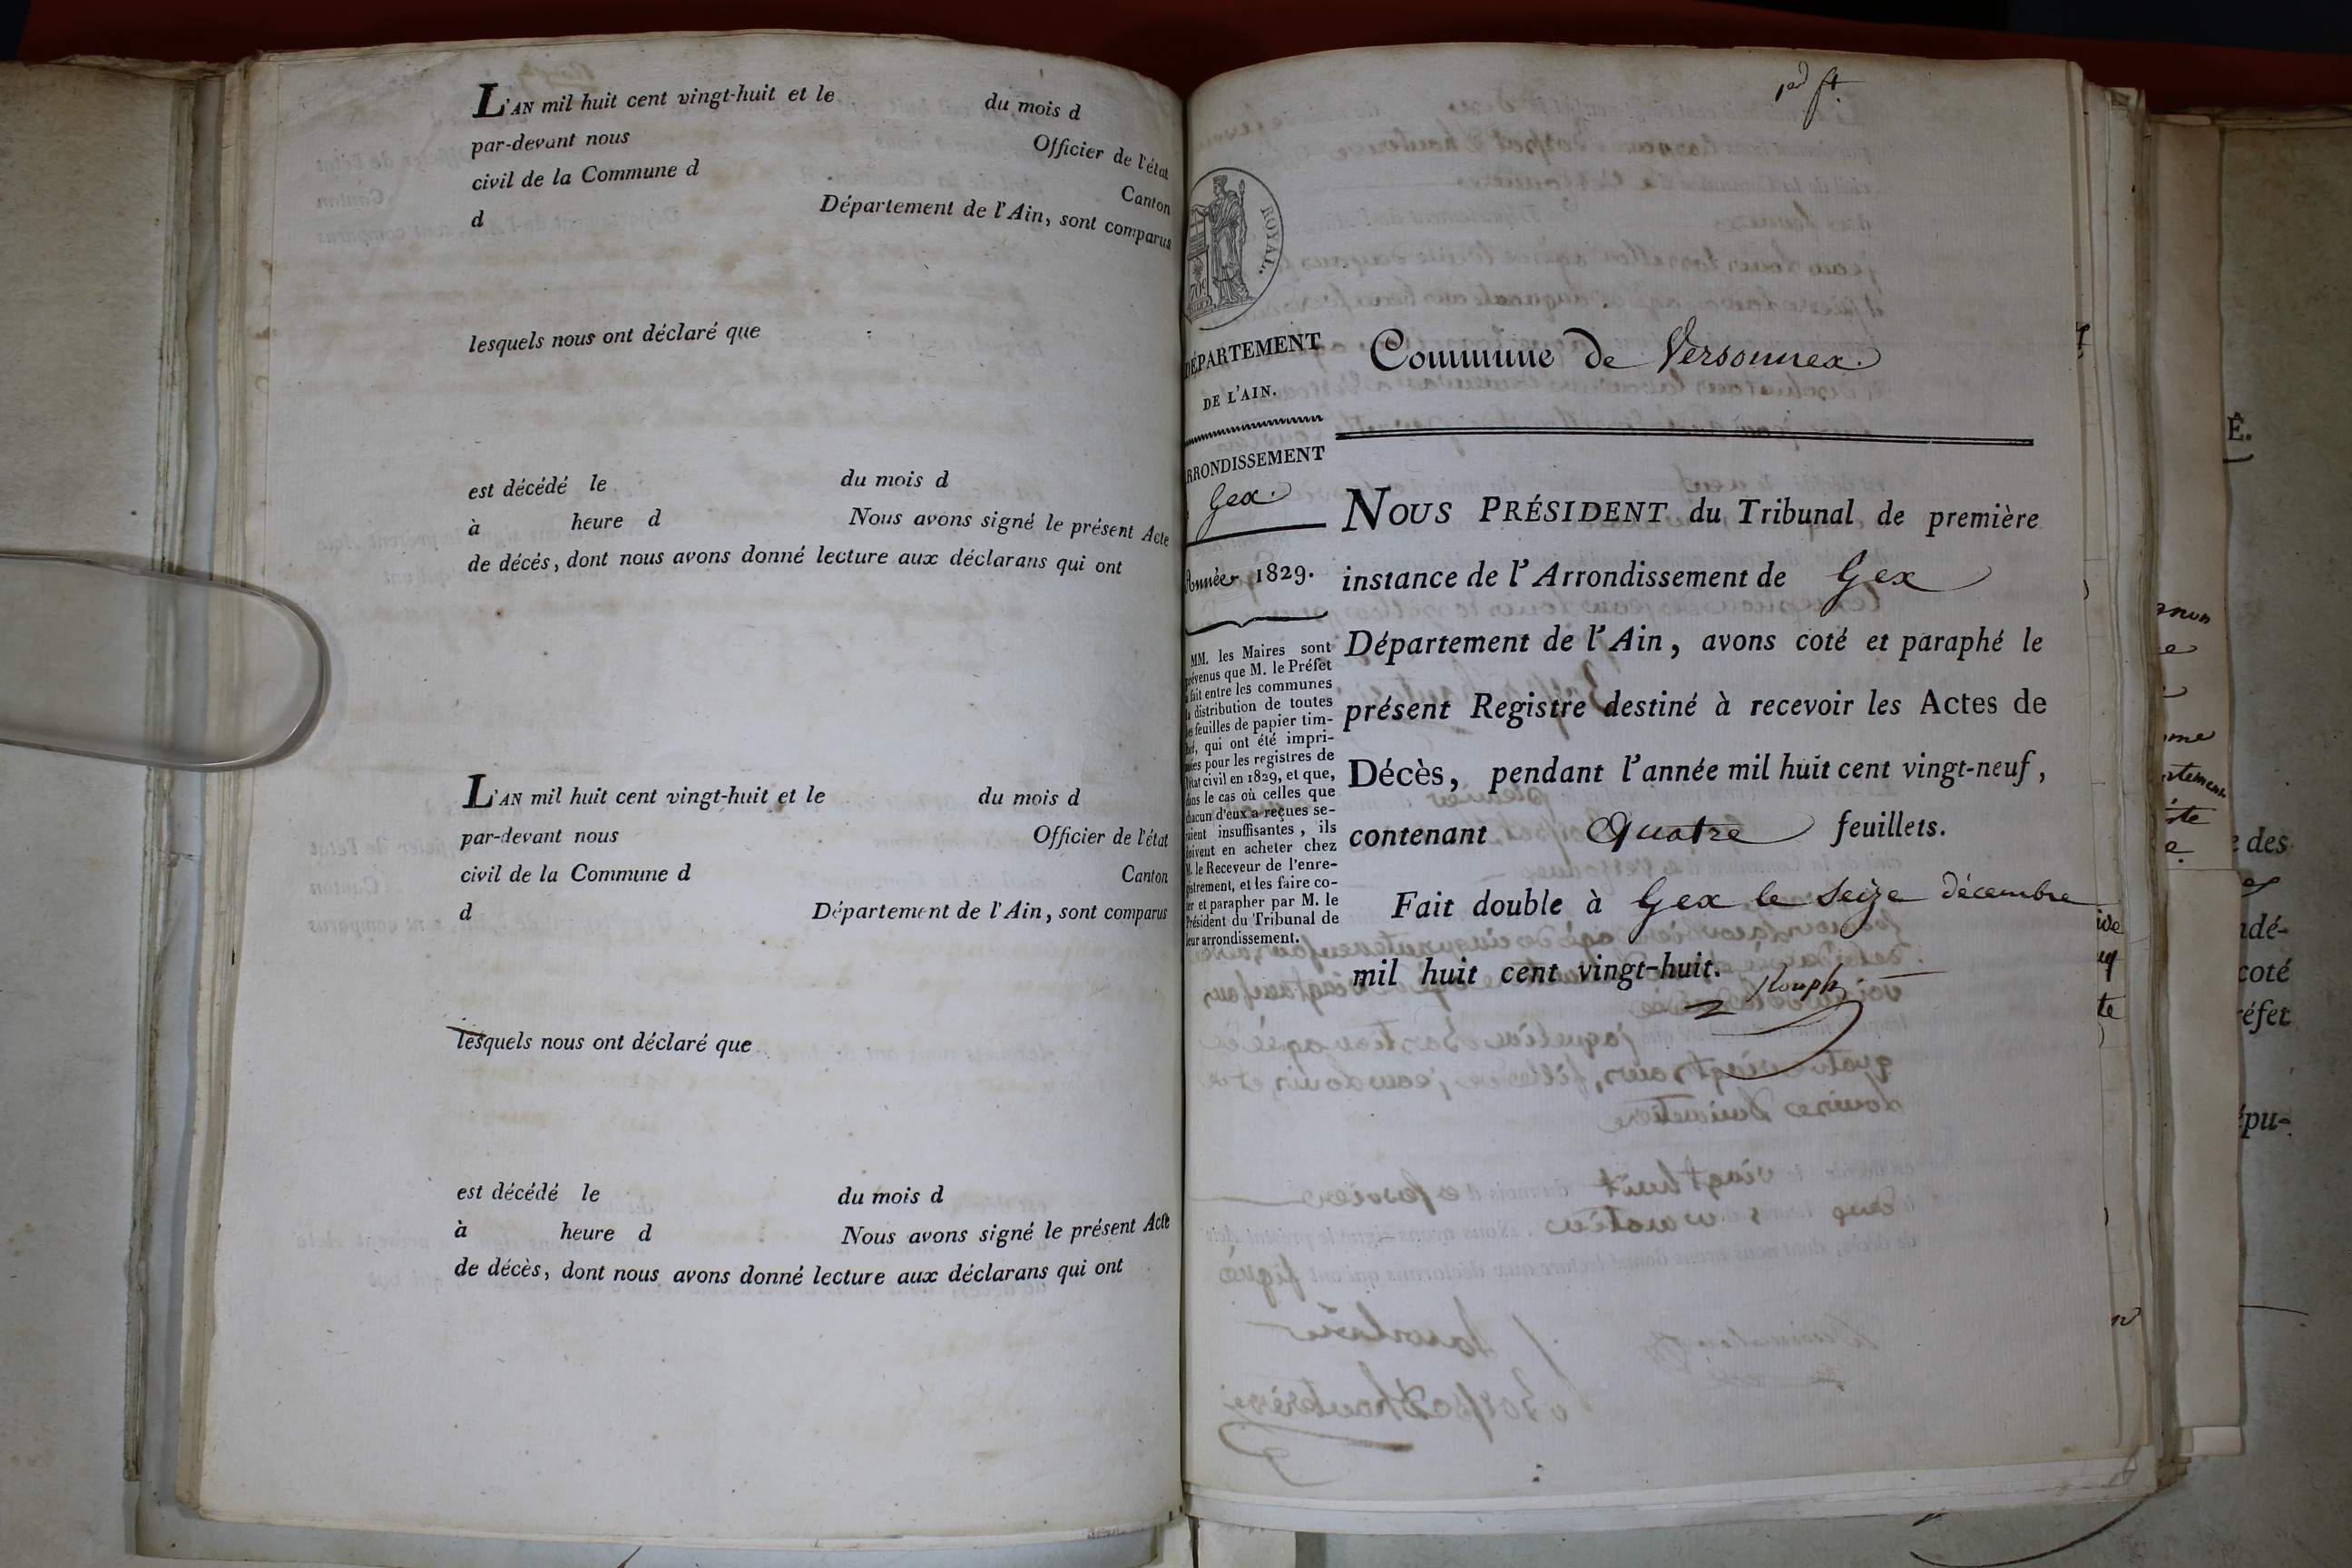 L'AN mil huit cent vingt-huit et le du mois d
par-devant nous Officier de l'état
civil de la Commune d Canton
d Département de l'Ain, sont comparus
lesquels nous ont déclaré que
est décédé le du mois d
à heure d Nous avons signé le présent Acte
de décés, dont nous avons donné lecture aux déclarans qui ont
L'AN mil huit cent vingt-huit et le du mois d
par-devant nous Officier de l'état
civil de la Commune d Canton
d Département de l'Ain, sont comparus
lesquels nous ont déclaré que
est décédé le du mois d
à heure d Nous avons signé le présent Acte
de décès, dont nous avons donné lecture aux déclarans qui ont
ROYAL.
DÉPARTEMENT
DE L'AIN.
ARRONDISSEMENT
Gex.
Année 1829.
MM. les Maires sont
prévenus que M. le Préfet
a fait entre les communes
la distribution de toutes
les feuilles de papier tim-
bré, qui ont été impri-
mées pour les registres de
l'état civil en 1829, et que,
dans le cas où celles que
chacun d'eux a reçues se-
raient insuffisantes, ils
doivent en acheter chez
M. le Receveur de l'enre-
gistrement, et les faire co-
ter et parapher par M. le
Président du Tribunal de
leur arrondissement.
Commune de Versonnex.
NOUS PRÉSIDENT du Tribunal de première
instance de l'Arrondissement de Gex
Département de l'Ain, avons coté et paraphé le
présent Registre destiné à recevoir les Actes de
Décès, pendant l'année mil huit cent vingt-neuf,
contenant Quatre feuillets.
Fait double à Gex le Seize décembre
mil huit cent vingt-huit.